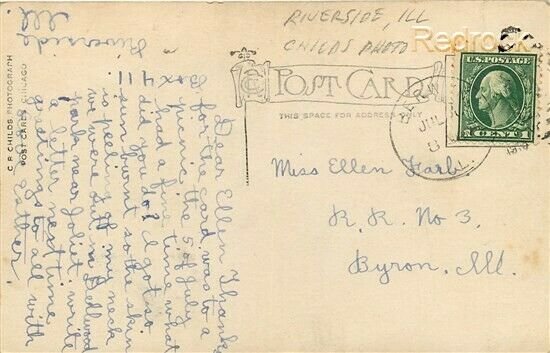 RIVERSIDE, ILL
CHILDS PHOTO
POST CARD
THIS SPACE FOR ADDRESS ONLY.
U.S. POSTAGE
1 CENT 1
JUL
Miss Ellen
R. R. No 3.
Byron, Ill.
C.R. CHILDS PHOTOGRAPH
POST CARDS CHICAGO
Riverside
Ill
Box 411
Dear Ellen Thanks
for the card was to a
picnic the 5 of July
had a fine time what
did you do? I got so
sun burnt so the skin
is peeling off my neck
we were out in Dellwood
park near Joliet write
a letter next time
greetings to all with
Esther.